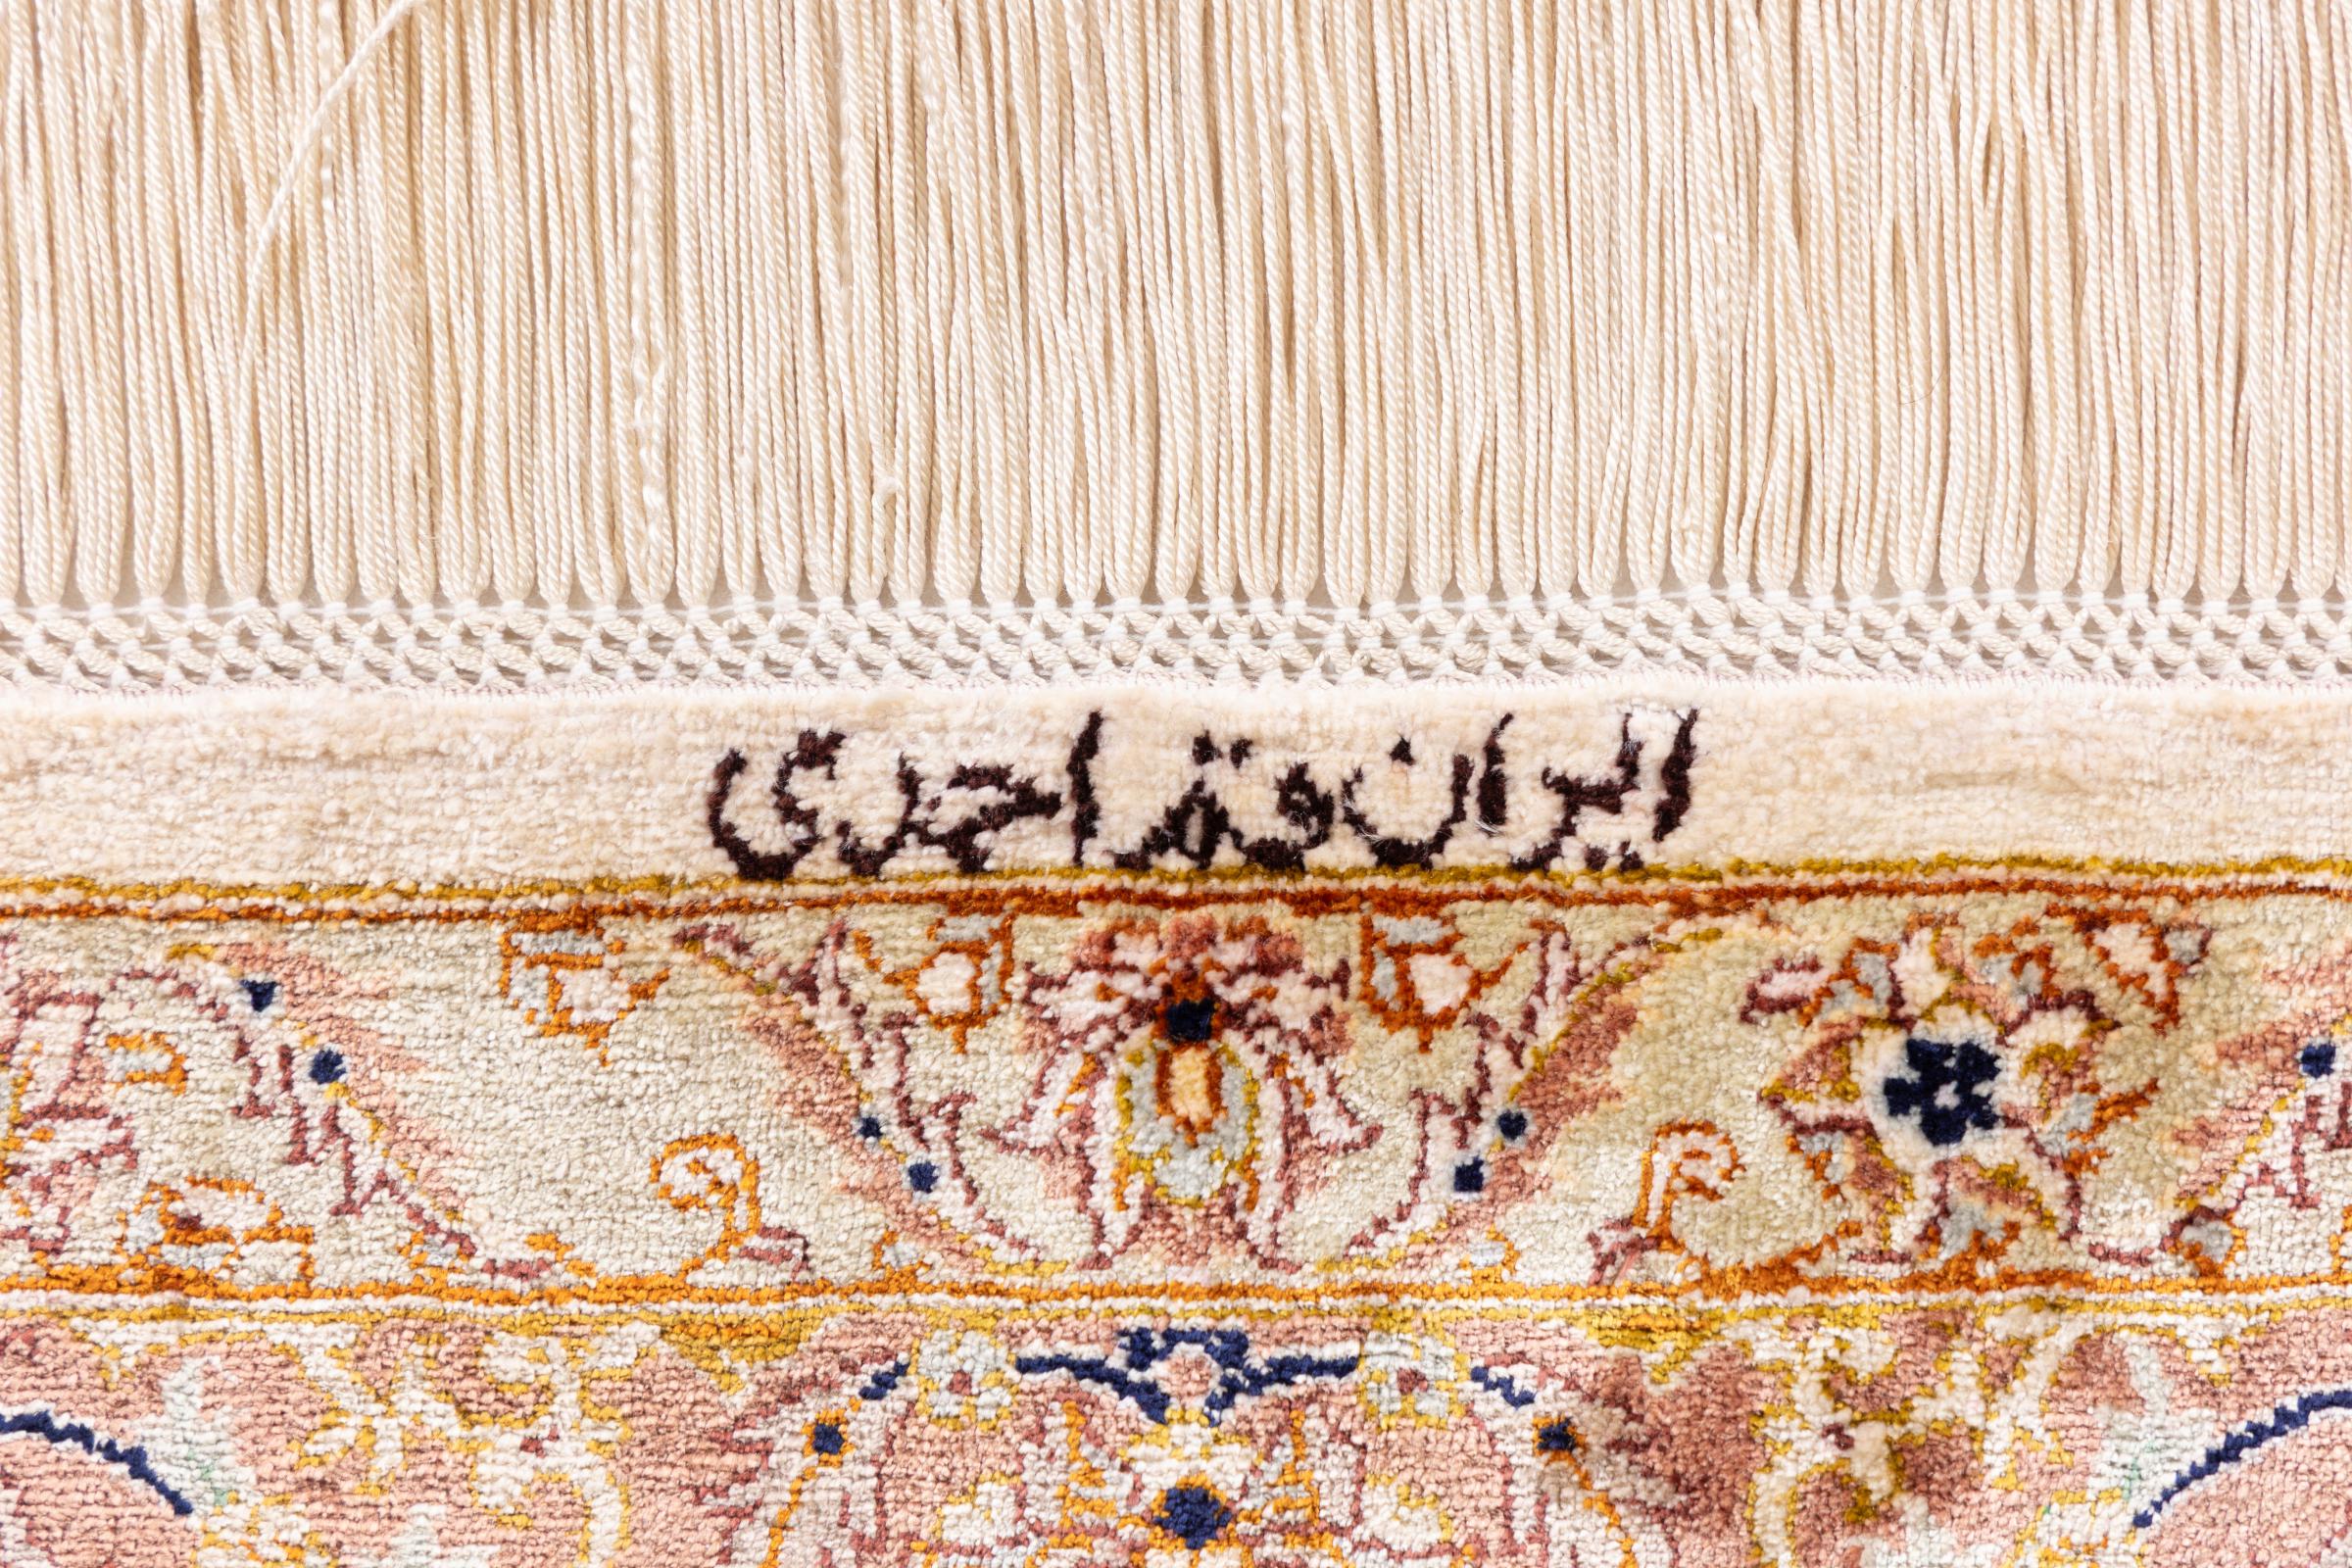 ایران قم احدی